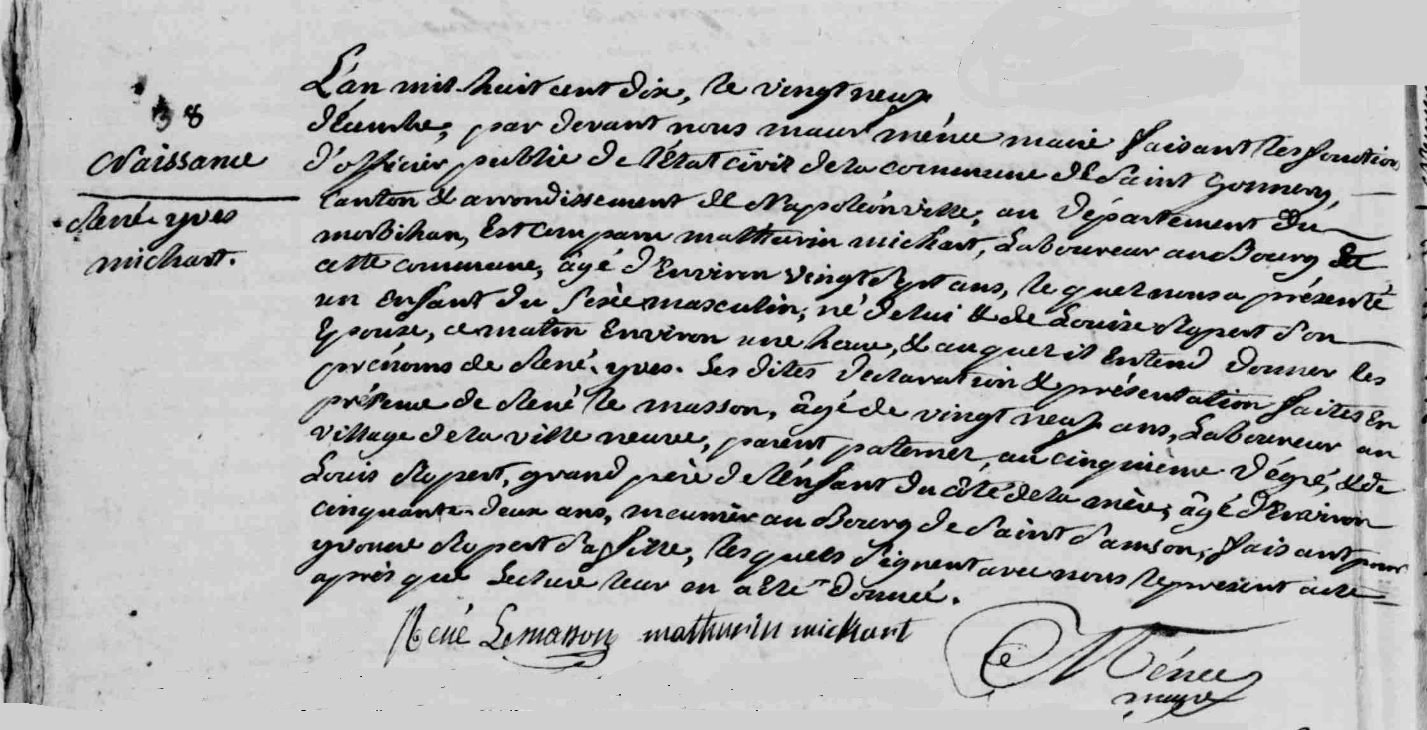 38
Naissance
René yves
michart.
L'an mil huit cent dix, le vingt neuf
Décembre, par devant nous maur ménec maire faisant les fonction
d'officier public de l'Etat civil de la commune de Saint Gonnery,
Canton & arrondissement de Napoléonville, au Département du
morbihan, Est comparu mathurin michart, Laboureur au Bourg de
cette commune, âgé d'Environ vingt Sept ans, le quel nous a présenté
un Enfant du Sexe masculin, né de lui & de Louise Rupert Son
Epouse, ce matin Environ une heure, & au quel il Entend Donner les
prénoms de René-yves. Les dites Déclaration & présentation faites En
présence de René le masson, âgé de vingt neuf ans, Laboureur au
village de la ville neuve, parent paternel au cinquième dégré, & de
Louis Rupert, grand père de l'énfant du côté de la mère, âgé d'Environ
cinquante-deux ans, meunier au Bourg de Saint Samson, faisant pour
yvonne Rupert Sa fille, les quels Signent avec nous le présent acte
après que Lecture leur en a Eté Donnée.
René Lemasson mathurin michart
Ménec
mayre